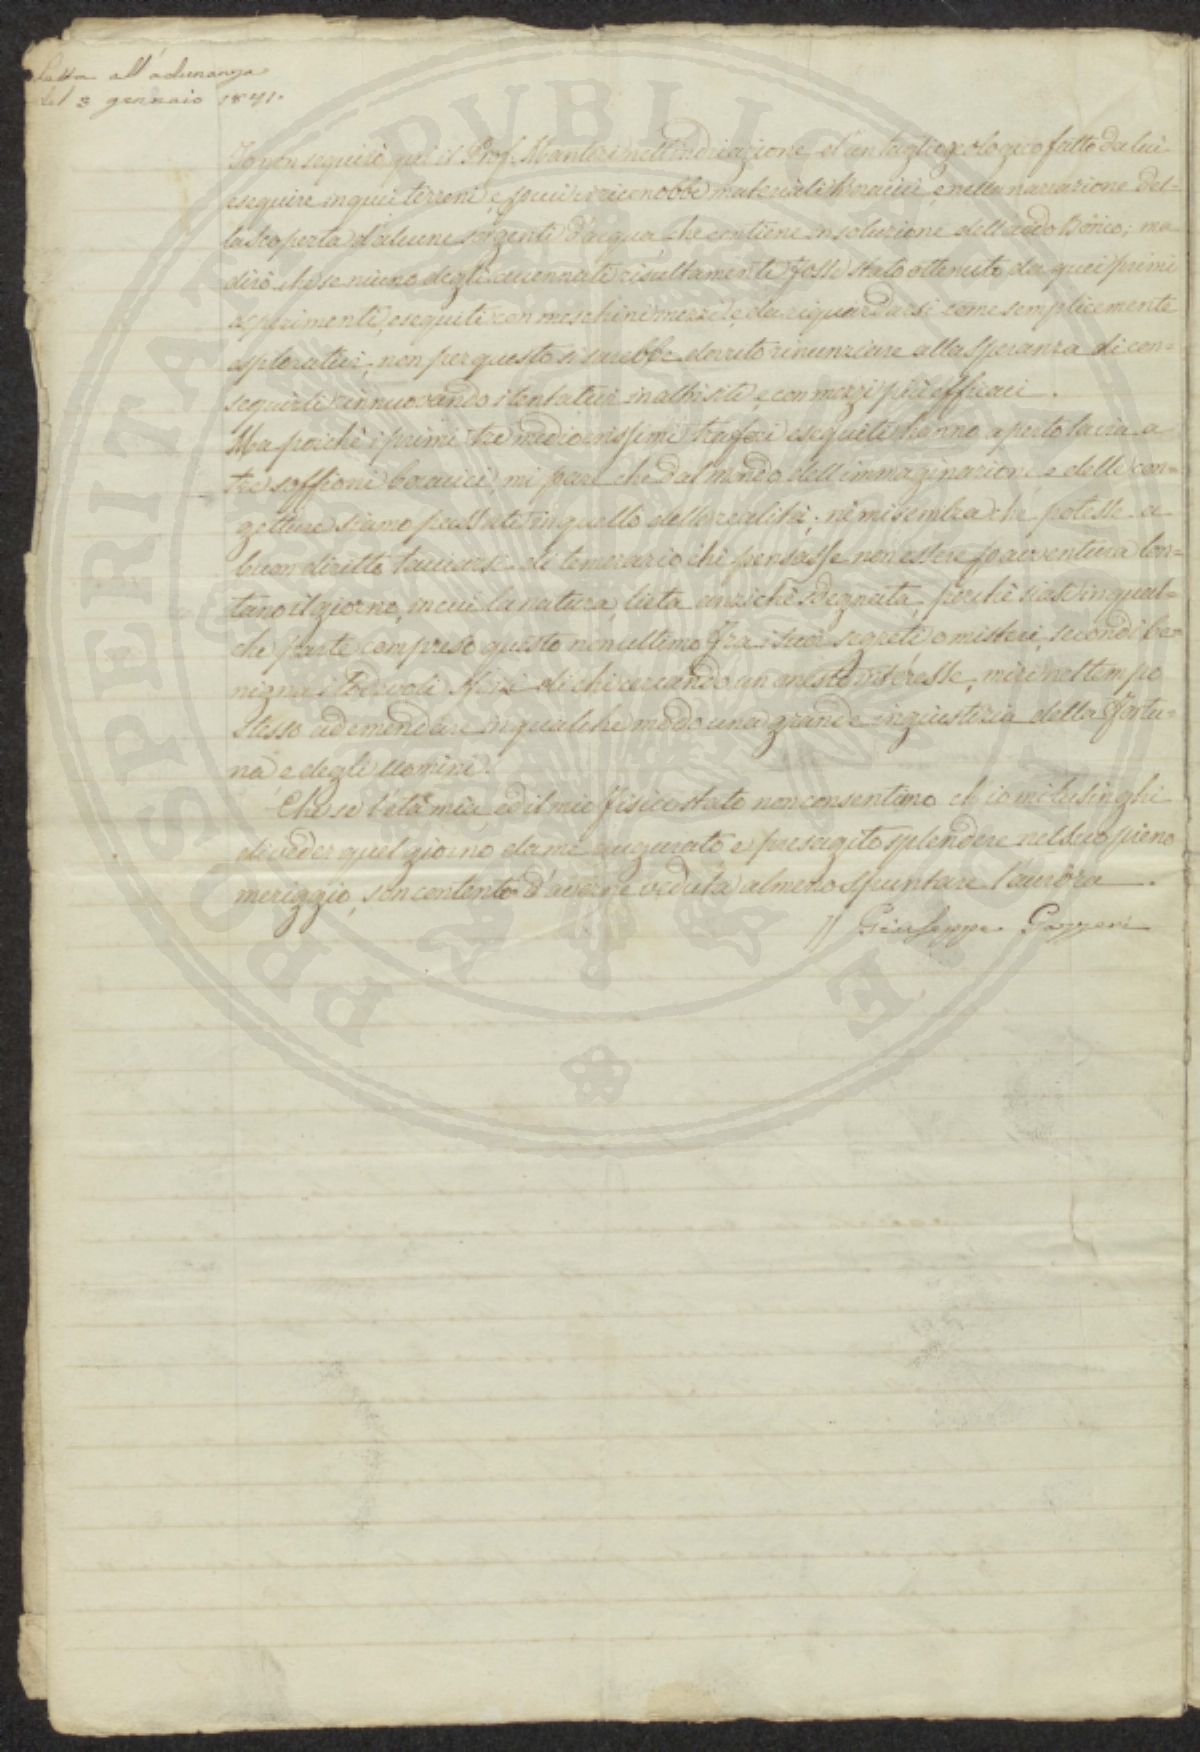 Letta all'adunanza
del 3 gennaio 1841.
Io non seguirò qui il Prof. nell'indicazione d'un taglio geologico fatto da lui
eseguire in quei terreni, e in cui riconobbe materiali boraciferi, e nella narrazione del=
la scoperta d'alcune sorgenti d'acqua che contiene in soluzione dell'acido Bórico; ma
dirò che se niuno degli accennati risultamenti fosse stato ottenuto da quei primi
esperimenti, eseguiti con meschini mezzi e da riguardarsi come semplicemente
esplorativi, non per questo si sarebbe dovuto rinunziare alla speranza di con=
seguirli rinnuovando i tentativi in altri siti, e con mezzi più efficaci.
Ma poichè i primi tre mediocrissimi trafori eseguiti hanno aperto la via a
tre soffioni boracici, mi pare che dal mondo dell'immaginazione e delle con=
getture siamo passati in quello della realità; nè mi sembra che potesse a
buon diritto tacciarsi di temerario chi pensasse non essere per avventura lon=
tano il giorno, in cui la natura, lieta anzichè sdegnata, perchè siasi in qual=
che parte compreso questo non ultimo fra i suoi segreti o misteri, secondi be=
nigna i lodevoli sforzi di chi cercando un onesto interesse, miri nel tempo
stesso ad emendare in qualche modo una grande ingiustizia della fortu=
na e degli uomini.
Che se l'età mia ed il mio fisico stato non consentono ch'io mi lusinghi
di veder quel giorno da me augurato e presagito splendere nel suo pieno
meriggio, son contento d'averne veduta almeno spuntare l'aurora.
Giuseppe Gazzeri
PROSPERITATI PUBLICAE